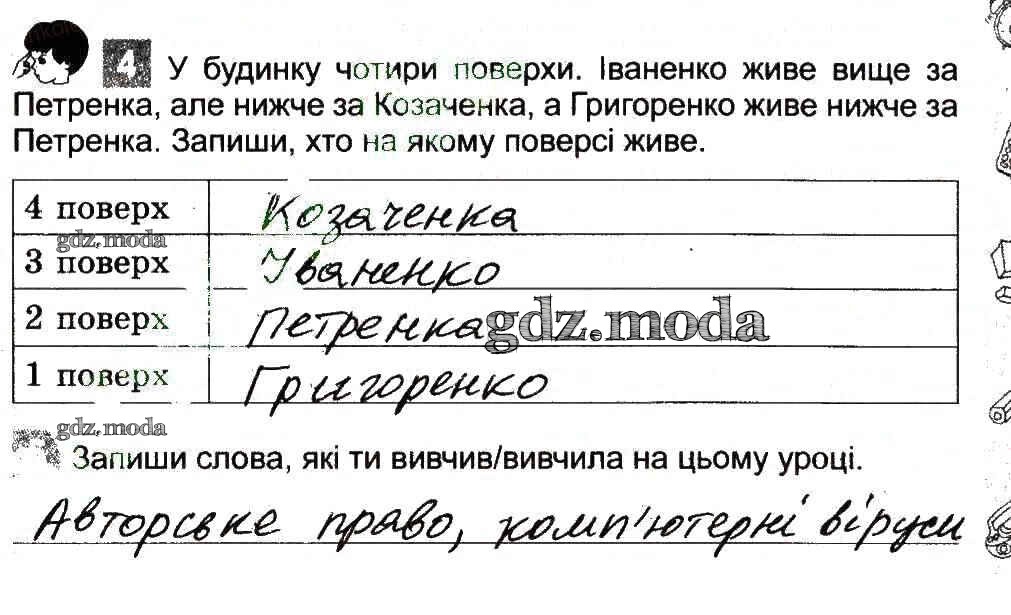 4 У будинку чотири поверхи. Іваненко живе вище за
Петренка, але нижче за Козаченка, а Григоренко живе нижче за
Петренка. Запиши, хто на якому поверсі живе.
4 поверх Козаченка
gdz.moda
3 поверх Іваненко
2 поверх Петренка gdz.moda
1 поверх Григоренко
gdz.moda
Запиши слова, які ти вивчив/вивчила на цьому уроці.
Авторське право, комп'ютерні віруси